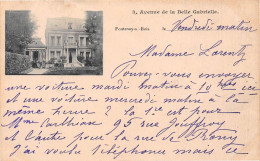 5, Avenue de la Belle Gabrielle.
Fontenay-s-Bois, le Vendredi matin
Madame Lorentz
Pouvez-vous envoyer
une voiture mardi matin à 10 hres
et une voiture mercredi matin à la
même heure ? La 1re est pour
Mme 95 rue
et l'autre pour la rue de Rosny
J'ai voulu téléphoner mais